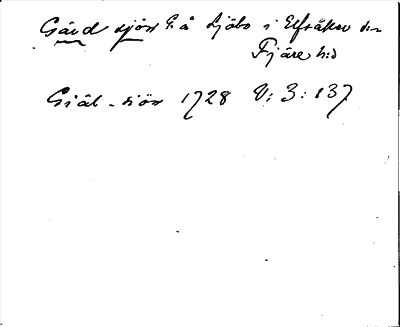 Gård sjön På Sjöbo i Elfsåker sn
Fjäre hd
Giäl-siön 1728 V: 3: 137